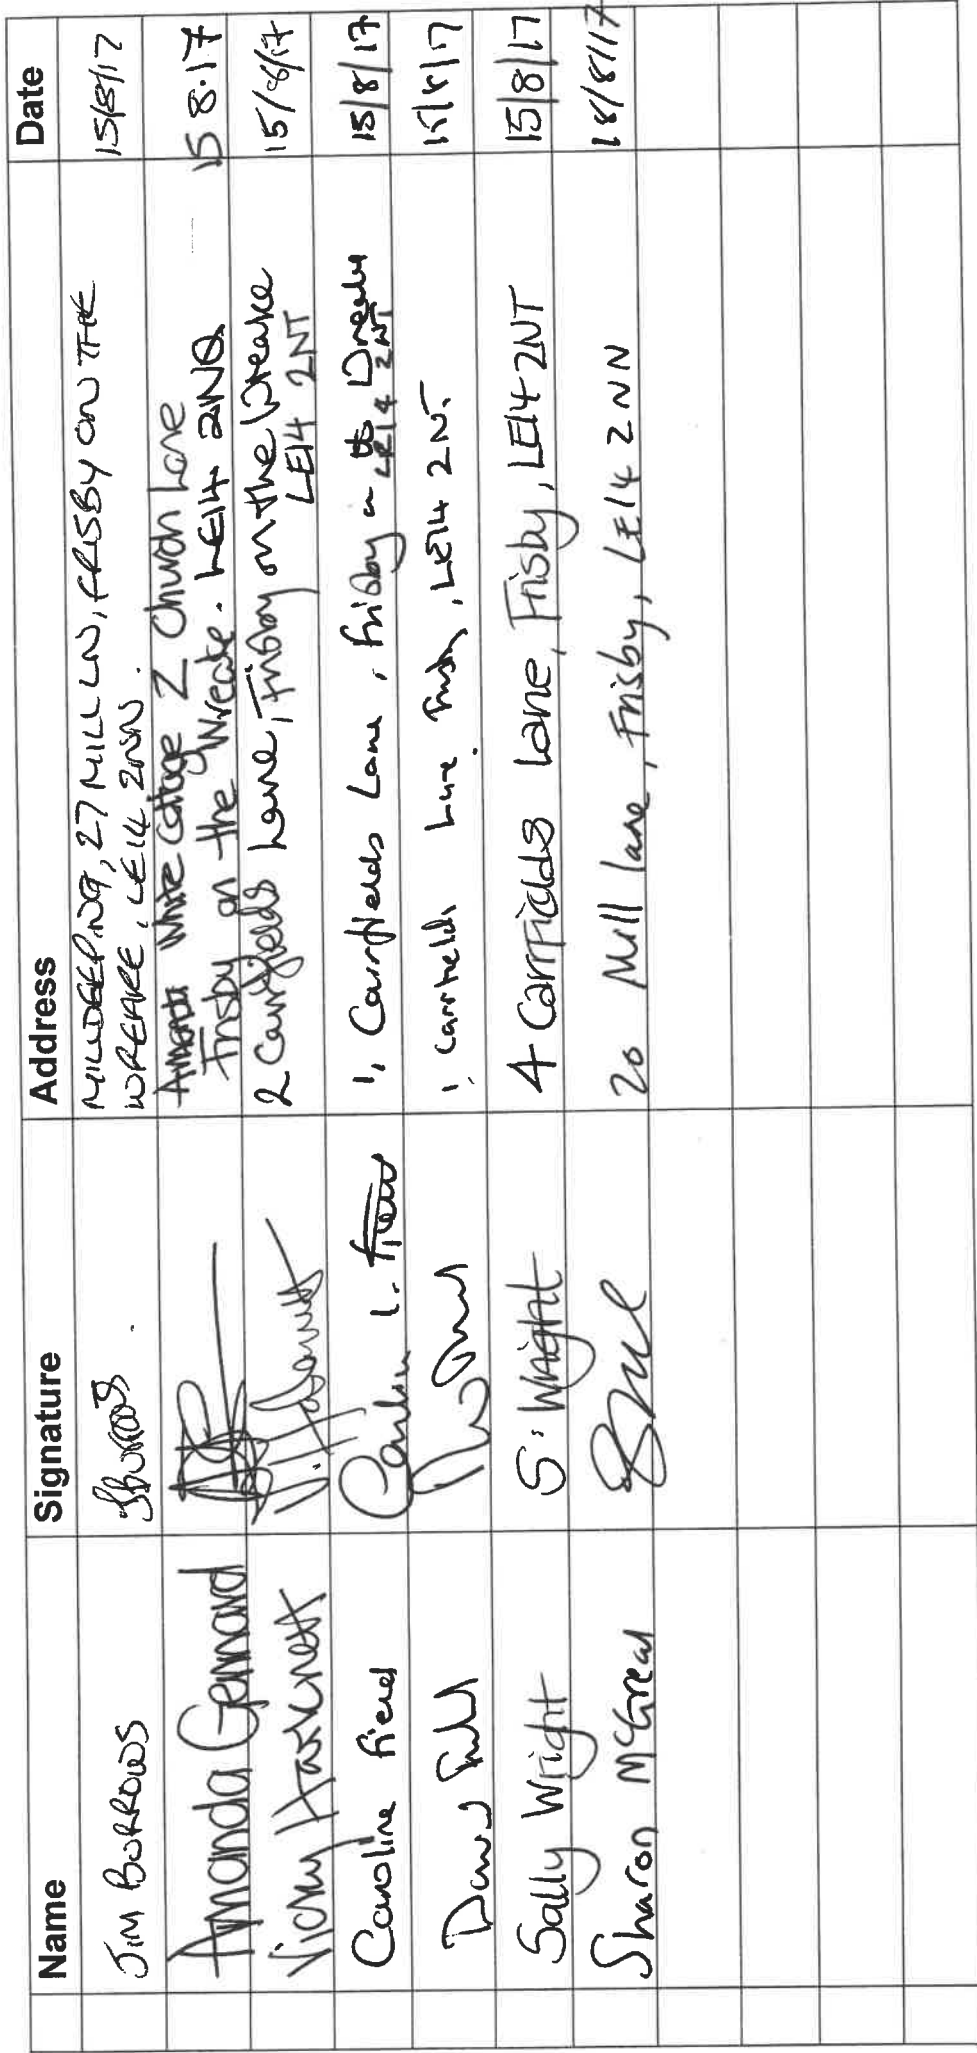 Name Signature Address Date
JIM BURROWS JBurrows MILLDEEPING, 27 MILL LN, FRISBY ON THE 15/8/17
WREAKE, LE14 2NN.
Amanda Gennard White Cottage 2 Church Lane 15 8.17
Frisby on the Wreake. LE14 2NQ
Vicky Hackett 2 Carrfields Lane, Frisby on the Wreake 15/8/17
LE14 2NT
Caroline Field 1, Carrfields Lane, Frisby on the Wreake 15/8/17
LE14 2NT
David Field 1, Carrfields Lane Frisby, LE14 2NT. 15/8/17
Sally Wright S. Wright 4 Carrfields Lane, Frisby, LE14 2NT 15/8/17
Sharon McGreal 20 Mill lane, Frisby, LE14 2NN 18/8/17